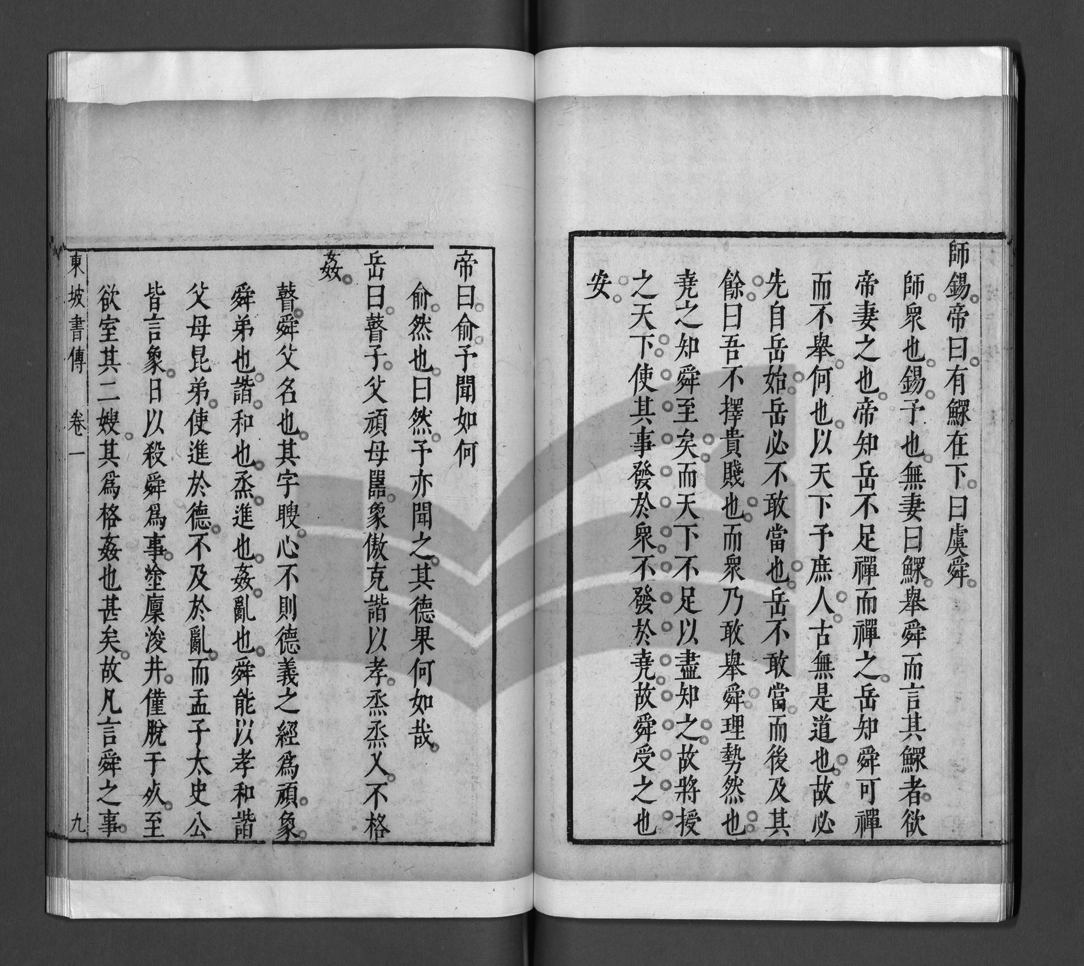 師錫帝曰有鰥在下曰虞舜
師衆也錫予也無妻曰鰥舉舜而言其鰥者欲
帝妻之也帝知岳不足禪而禪之岳知舜可禪
而不舉何也以天下予庶人古無是道也故必
先自岳始岳必不敢當也岳不敢當而後及其
餘曰吾不擇貴賤也而衆乃敢舉舜理勢然也
堯之知舜至矣而天下不足以盡知之故將授
之天下使其事發於衆不發於堯故舜受之也
安
帝曰俞予聞如何
俞然也曰然予亦聞之其德果何如哉
岳曰瞽子父頑母嚚象傲克諧以孝烝烝乂不格
姦
瞽舜父名也其字瞍心不則德義之經爲頑象
舜弟也諧和也烝進也姦亂也舜能以孝和諧
父母昆弟使進於德不及於亂而孟子太史公
皆言象日以殺舜爲事塗廩浚井僅脫于死至
欲室其二嫂其爲格姦也甚矣故凡言舜之事
東坡書傳 卷一 九